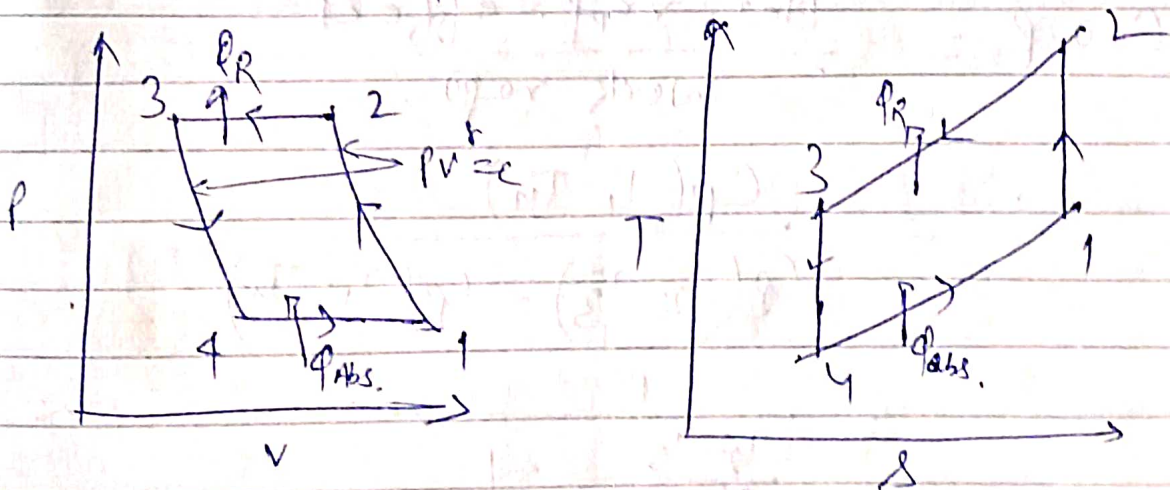 Q_R
3
2
PV^γ = c
P
4
Q_Abs.
1
V
2
Q_R
3
T
1
4
Q_abs.
S